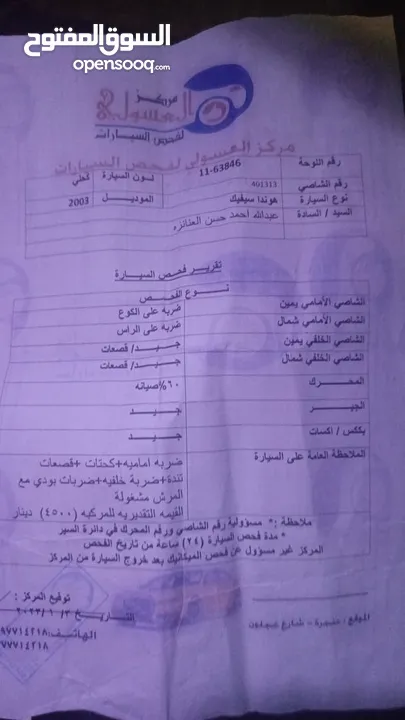 السوق المفتوح
opensooq.com
مركز
العسولي
لفحص السيارات
مركز العسولي لفحص السيارات
رقم اللوحة 11-63846 لون السيارة كحلي
رقم الشاصي 401313
نوع السيارة هوندا سيفيك الموديل 2003
السيد / السادة عبدالله أحمد حسن العنانزه
تقرير فحص السيارة
نوع الفحص
الشاصي الأمامي يمين ضربة على الكوع
الشاصي الأمامي شمال ضربة على الراس
الشاصي الخلفي يمين جيد/ قصعات
الشاصي الخلفي شمال جيد/ قصعات
المحرك ٦٠%صيانه
الجير جيد
بكس / اكسات جيد
الملاحظة العامة على السيارة ضربه اماميه+كحتات +قصعات
تندة+ضربة خلفيه+ضربات بودي مع
المرش مشغولة
القيمه التقديريه للمركبه (٤٥٠٠) دينار
ملاحظة :* مسؤولية رقم الشاصي ورقم المحرك في دائرة السير
* مدة فحص السيارة (٢٤) ساعة من تاريخ الفحص
المركز غير مسؤول عن فحص الميكانيك بعد خروج السيارة من المركز
توقيع المركز :
التاريخ ٣/ ١ /٢٠٢٣
الهاتف:
٧٧١٤٢١٨
الموقع : صخرة - شارع عجلون